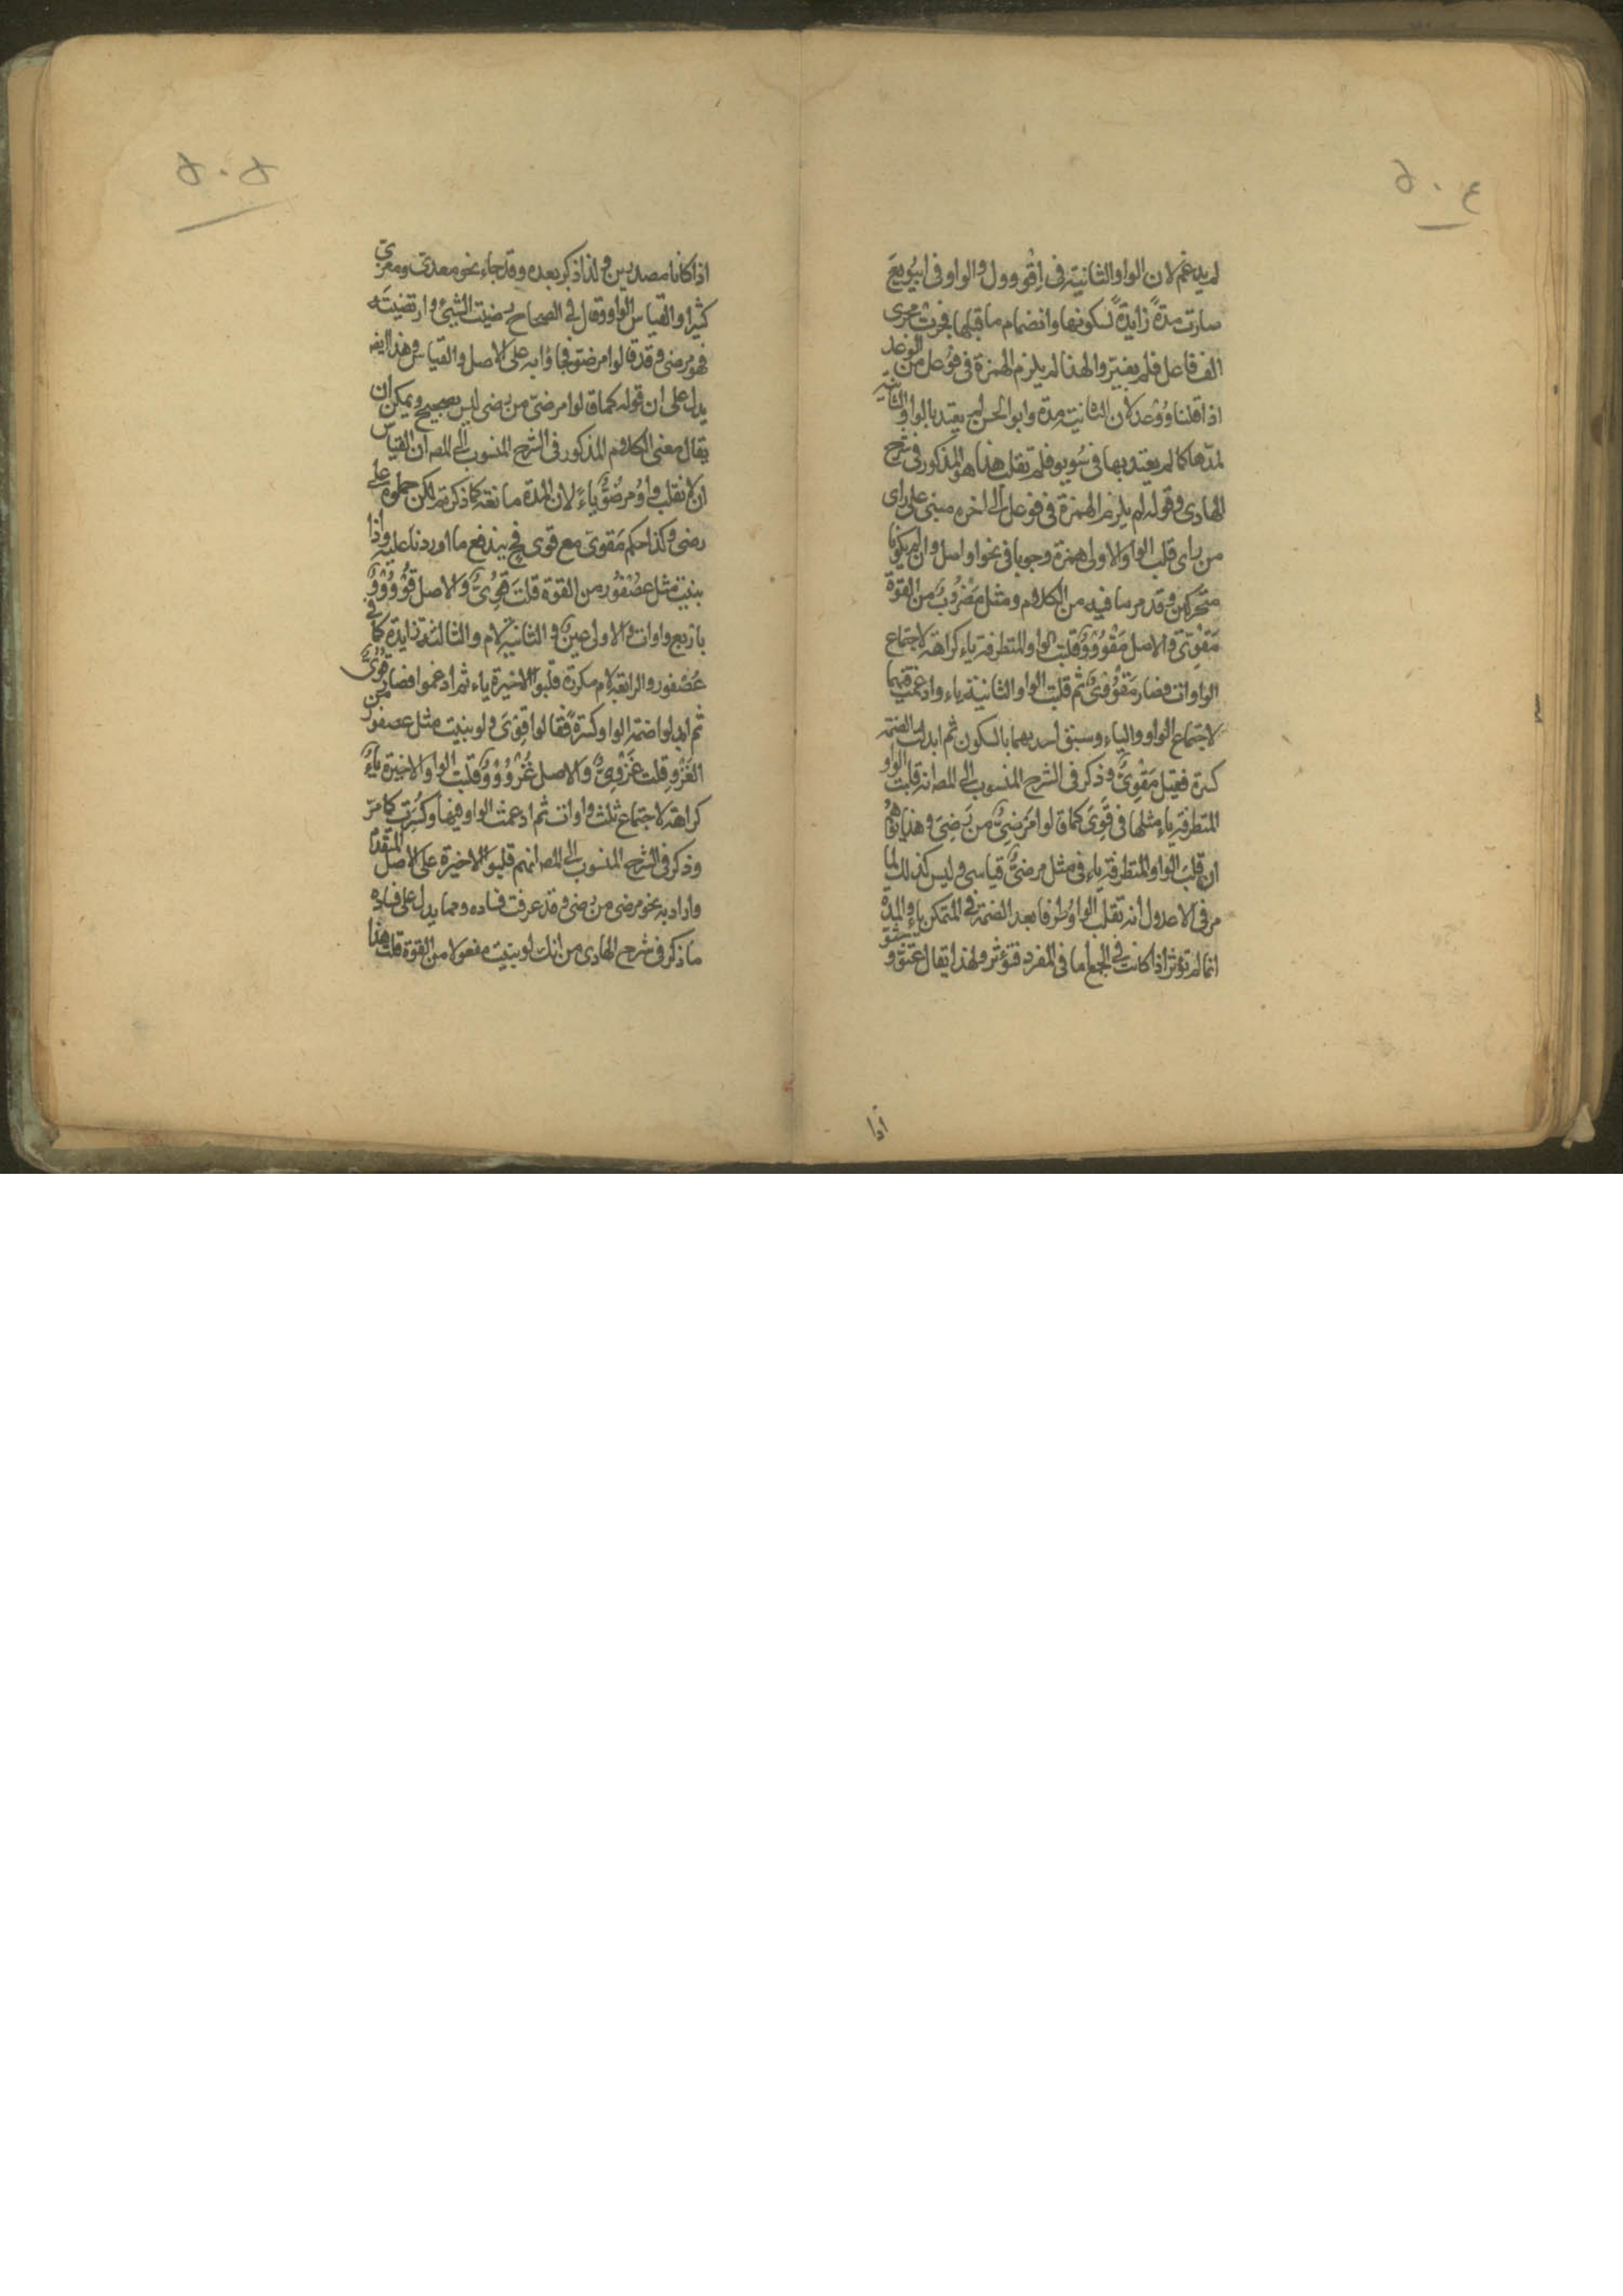 ٥٠٤
لم يدغم لان الواو الثانية فى اِقْووول والواو فى ابيُويعَ
صارت مدةً زايدةً لسكونها وانضمام ما قبلها فجرت مجرى
الف فاعل فلم يغير ولهذا لم يلزم الهمزة فى فوُعل من الوعد
اذا قلنا وُوْعد لان الثانية مدة وابو الحسن لم يعتد بالواو الثانية
لمدّها كما لم يعتد بها فى سُوير فلم تقلب هذا هو المذكور فى شرح
الهادى وقوله لم يلزم الهمزة فى فوعل الى اخره مبنى على راى
من راى قلب الواو الاولى همزة وجوبا فى نحو اواصل وان لم يكونا
متحركين وقد مر ما فيه من الكلام ومثل مَضْرُوبٌ من القوة
مَقْوِىّ والاصل مَقْوُوْوٌ قلبت الواو المتطرفة ياء كراهة لاجتماع
الواوات فصار مَقْوُوْىٌ ثم قلبت الواو الثانية ياء وادغمت فيها
لاجتماع الواو والياء وسبق احديهما بالسكون ثم ابدلت الضمة
كسرة فقيل مَقْوِىٌّ وذكر فى الشرح المنسوب الى المص انه قلبت الواو
المتطرفة ياء مثلها فى قَوِىَ كما قالوا مَرْضِىٌّ من رَضِىَ وهذا يوهم
ان قلب الواو المتطرفة ياء فى مثل مرضىٌّ قياسى وليس كذلك لما
مر فى الاعدول انه تقلب الواو طرفا بعد الضمة فى المتمكن ياء والمدة
انما لم تؤثر اذا كانت فى الجمع اما فى المفرد فتؤثر ولهذا يقال عتوّ و
اذا
٥٠٥
اذا كانا مصدرين ولذا ذكر بعده وقد جاء نحو معدىّ ومغزىّ
كثيرا والقياس الواو وقال فى الصحاح رضيت الشىء وارتضيته
فهو مرضى وقد قالوا مرضوّ فجاؤا به على الاصل والقياس وهذا ايضا
يدل على ان قوله كما قالوا مرضىّ من رضى ليس بصحيح ويمكن ان
يقال معنى الكلام المذكور فى الشرح المنسوب الى المص ان القياس
ان لا تقلب واو مرضُوٌّ ياءً لان المدة مانعة كما ذكرتم لكن حملوه على
رضى وكذا حكم مَقوىّ مع قوى فح يندفع ما اوردنا عليه واذا
بنيت مثل عصْفُور من القوة قلت قُوِّىٌّ والاصل قُوْوُوْوٌ
باربع واوات والاولى عين والثانية لام والثالثة زايدة كما فى
عُصْفور والرابعة لام مكررة قلبوا الاخيرة ياء ثم ادغموا فصار قُوُّىٌّ
ثم ابدلوا ضمة الواو كسرةً فقالوا قوِّىّ ولو بنيت مثل عصفور من
الغَزْوِ قلت غُزْوِىٌّ والاصل غُزْوُوْوٌ قلبت الواو الاخيرة ياءً
كراهة لاجتماع ثلث واوات ثم ادغمت الواو فيها وكُسِرت كما مرّ
وذكر فى الشرح المنسوب الى المص انهم قلبوا الاخيرة على الاصل المتقدم
واراد به نحو مرضى من رضى وقد عرفت فساده ومما يدل على فساده
ما ذكر فى شرح الهادى من انك لو بنيت مفعولا من القوة قلت هذا